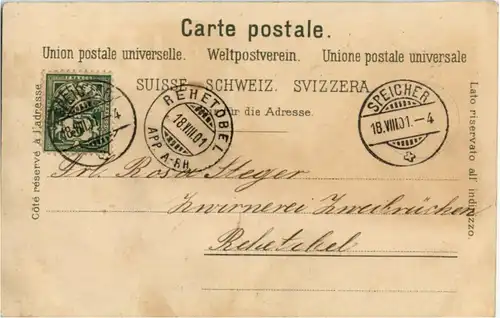 Carte postale.
Union postale universelle. Weltpostverein. Unione postale universale
SUISSE. SCHWEIZ. SVIZZERA.
Nur für die Adresse.
Côté réservé à l'adresse.
Lato riservato all' indirizzo.
REHETOBEL
18.VIII.01
APP. A-RH.
SPEICHER
18.VIII.01.–4
Frl. Rosa Steger
Zwirnerei Zweibrücken
Rehetobel